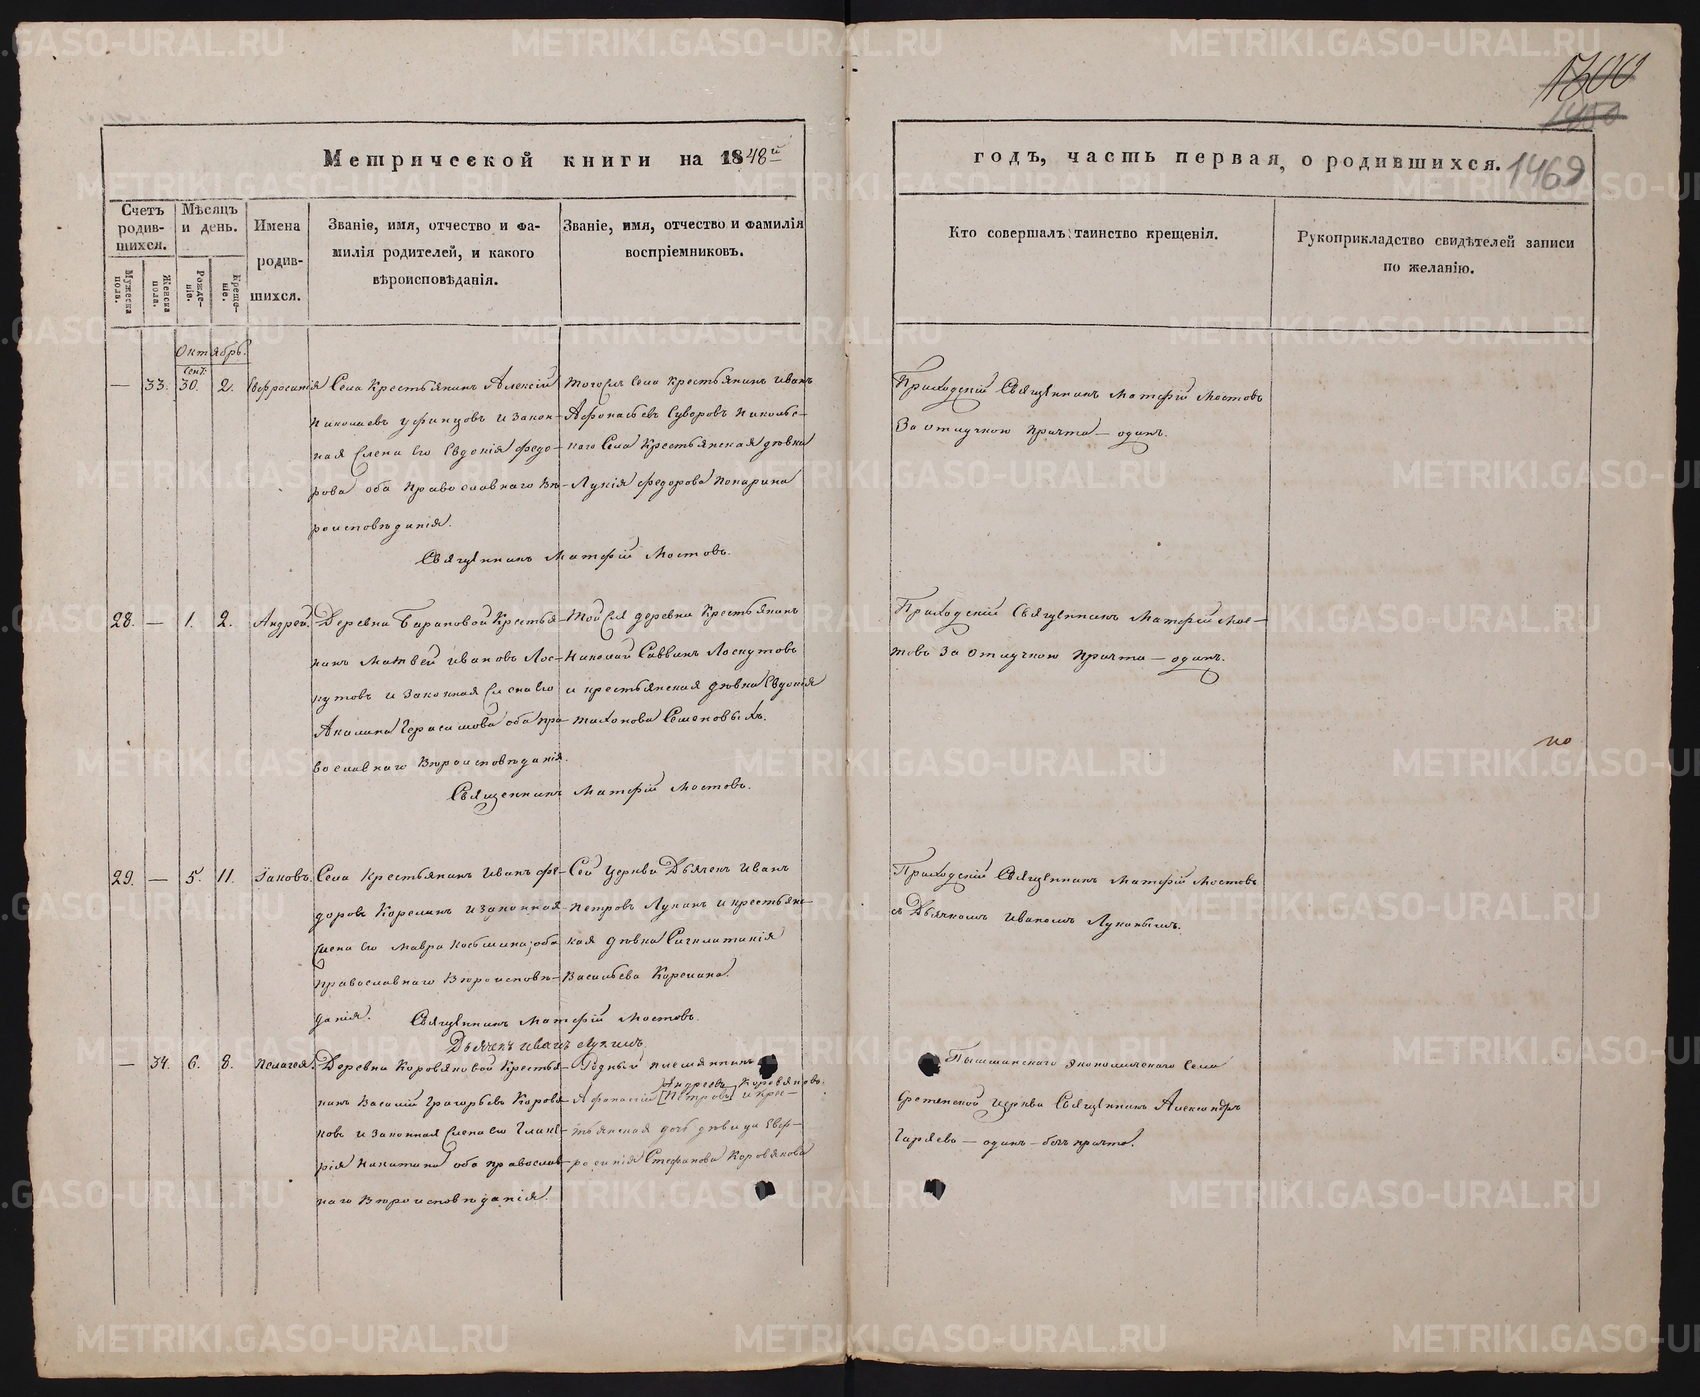 1300
1450
Метрической книги на 1848й
годъ, часть первая, о родившихся.
1469
Счетъ родив-шихся.
Мужеска пола.
Женска пола.
Мѣсяцъ и день.
Рожде-ніе.
Креще-ніе.
Имена родив-шихся.
Званіе, имя, отчество и фа-
милія родителей, и какого
вѣроисповѣданія.
Званіе, имя, отчество и фамилія
воспріемниковъ.
Кто совершалъ таинство крещенія.
Рукоприкладство свидѣтелей записи
по желанію.
Октябрь.
Сент.
— 33. 30. 2. Евфросинія
Села крестьянинъ Алексій
Николаевъ Уфинцовъ и закон-
ная жена его Евдокія Федо-
рова оба православнаго вѣ-
роисповѣданія.
тогожъ села крестьянинъ Иванъ
Афонасьевъ Суворовъ Никольс-
каго села крестьянская дѣвка
Лукія Федорова Понарина
Священникъ Матфій Мостовъ.
Приходскій Священникъ Матфій Мостовъ
За отлучкою причта — одинъ.
28. — 1. 2. Андрей.
Деревни Барановой крестья-
нинъ Матвей Ивановъ Лос-
кутовъ и законная жена его
Акилина Герасимова оба пра-
вославнаго вѣроисповѣданія.
той жа деревни крестьянинъ
Николай Саввинъ Лоскутовъ
и крестьянская дѣвка Евдокія
Тихонова Семеновыхъ.
Священникъ Матфій Мостовъ.
Приходскій Священникъ Матфій Мос-
товъ За отлучкою причта — одинъ.
29. — 5. 11. Іаковъ.
Села крестьянинъ Иванъ Фе-
доровъ Корелинъ и законная
жена его Мавра Козьмина; оба
православнаго вѣроисповѣ-
данія.
Сей церкви Дьячекъ Иванъ
Петровъ Лукинъ и крестьянс-
кая дѣвка Сигклитикія
Васильева Корелина.
Священникъ Матфій Мостовъ.
Дьячекъ Иванъ Лукинъ
Приходскій Священникъ Матфій Мостовъ
съ Дьячкомъ Иваномъ Лукинымъ.
— 34. 6. 8. Пелагея.
Деревни Коровяковой крестья-
нинъ Василій Григорьевъ Коровя-
ковъ и законная жена его Глике-
рія Никитина оба православ-
наго вѣроисповѣданія.
Родный племянникъ
Андреевъ Коровяковъ
Афанасій [Петровъ] и кре-
стьянская дочь дѣвица Евф-
росинія Стефанова Коровякова
Пышминскаго экономическаго села
Сретенской церкви Священникъ Александръ
Гаряевъ — одинъ — безъ причта.
METRIKI.GASO-URAL.RU